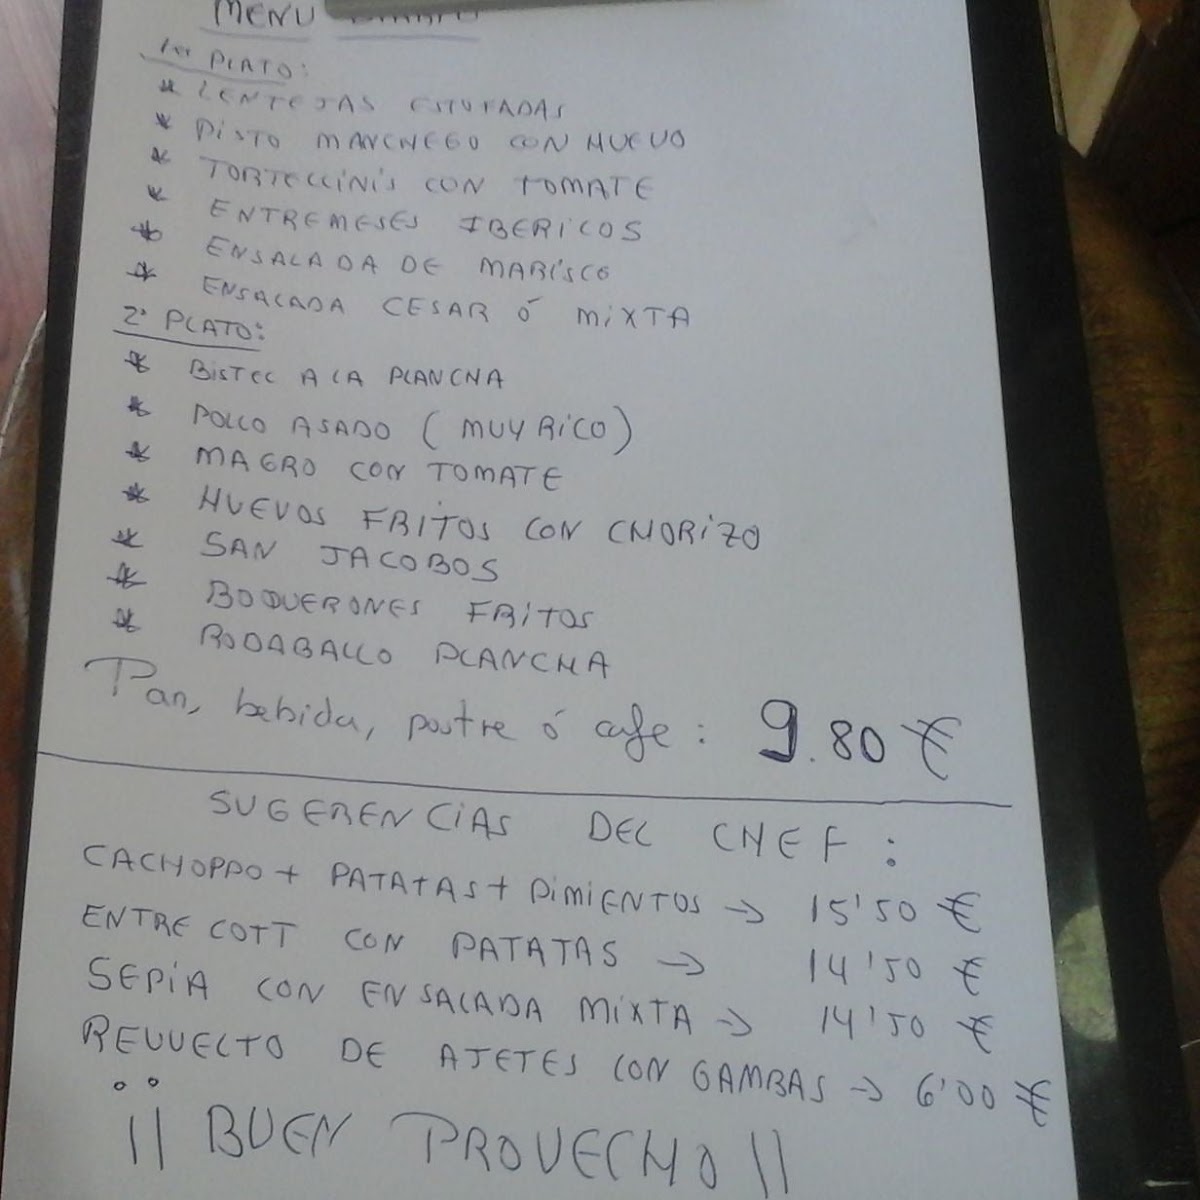 MENU
1er PLATO:
* LENTEJAS ESTUFADAS
* PISTO MANCHEGO CON HUEVO
* TORTELLINIS CON TOMATE
* ENTREMESES IBERICOS
* ENSALADA DE MARISCO
* ENSALADA CESAR Ó MIXTA
2º PLATO:
* BISTEC A LA PLANCHA
* POLLO ASADO (MUY RICO)
* MAGRO CON TOMATE
* HUEVOS FRITOS CON CHORIZO
* SAN JACOBOS
* BOQUERONES FRITOS
* RODABALLO PLANCHA
Pan, bebida, postre ó cafe : 9.80 €
SUGERENCIAS DEL CHEF :
CACHOPPO + PATATAS + PIMIENTOS → 15'50 €
ENTRECOTT CON PATATAS → 14'50 €
SEPIA CON ENSALADA MIXTA → 14'50 €
REVUELTO DE AJETES CON GAMBAS → 6'00 €
¡¡ BUEN PROVECHO !!